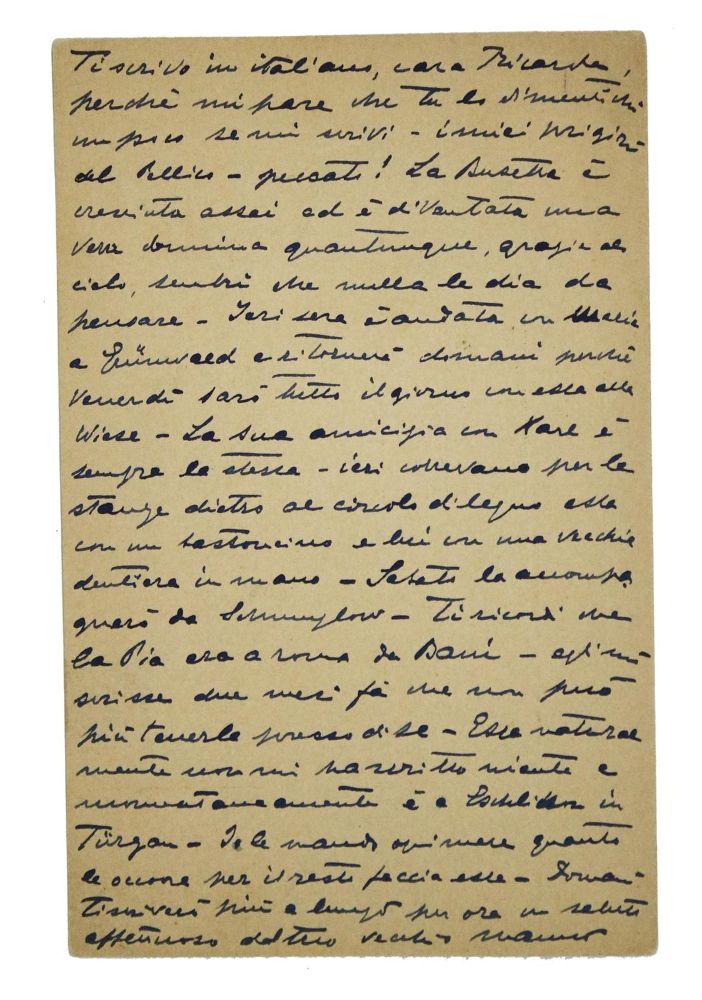 Ti scrivo in italiano, cara Ricarda,
perchè mi pare che tu lo dimentichi
un poco se mi scrivi – i miei prigioni
del Pellico – peccato! La Busetta è
cresciuta assai ed è diventata una
vera donnina quantunque, grazie al
cielo, sembri che nulla le dia da
pensare – Ieri sera è andata con Maria
a Grünwald e ritornerà domani perchè
Venerdì sarò tutto il giorno con essa alla
Wiese – La sua amicizia con Karl è
sempre la stessa – ieri correvano per le
stanze dietro al circolo di legno essa
con un bastoncino e lui con una vecchia
dentiera in mano – Sabato la accompa
gnerò da – Ti ricordi che
la Pia era a roma da – egli mi
scrisse due mesi fà che non può
più tenerla presso di se – Essa natural
mente non mi ha scritto niente e
momentaneamente è a in
Türgau – Io le mando ogni mese quanto
le occorre per il resto faccia essa – Domani
ti scriverò più a lungo per ora un saluto
affettuoso dal tuo vecchio